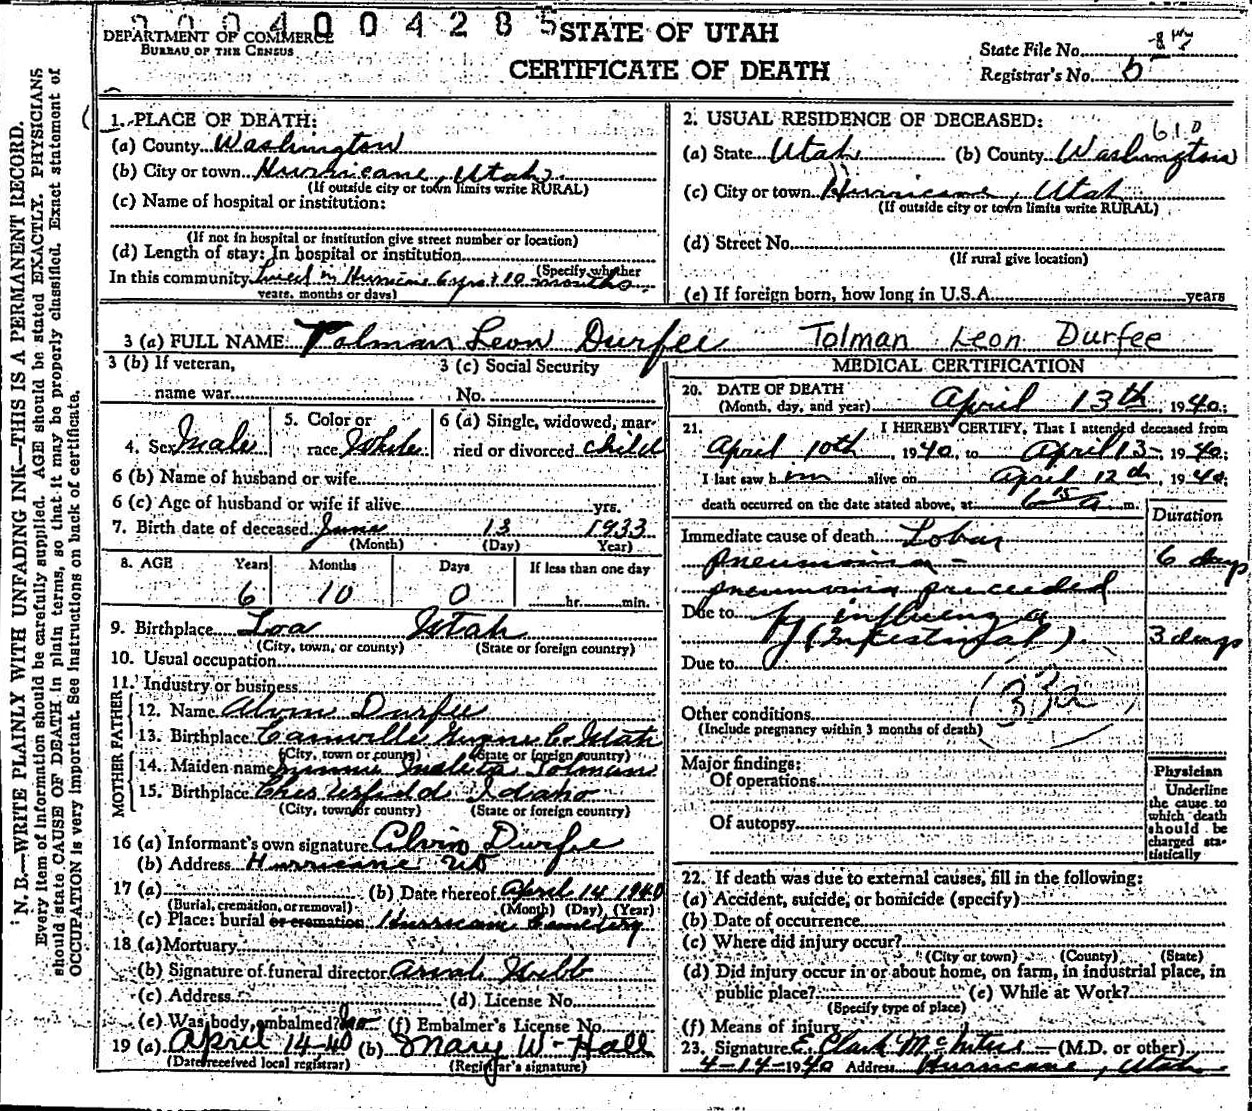 0004004285
STATE OF UTAH
DEPARTMENT OF COMMERCE
BUREAU OF THE CENSUS
CERTIFICATE OF DEATH
State File No.
Registrar's No. 5
N. B.—WRITE PLAINLY WITH UNFADING INK—THIS IS A PERMANENT RECORD.
Every item of information should be carefully supplied. AGE should be stated EXACTLY. PHYSICIANS
should state CAUSE OF DEATH in plain terms, so that it may be properly classified. Exact statement of
OCCUPATION is very important. See instructions on back of certificate.
1. PLACE OF DEATH:
(a) County Washington
(b) City or town Hurricane, Utah.
(If outside city or town limits write RURAL)
(c) Name of hospital or institution:
(If not in hospital or institution give street number or location)
(d) Length of stay: In hospital or institution
(Specify whether
In this community Lived in Hurricane 6 yrs + 10 months.
years, months or days)
2. USUAL RESIDENCE OF DECEASED:
610
(a) State Utah (b) County Washington
(c) City or town Hurricane, Utah
(If outside city or town limits write RURAL)
(d) Street No.
(If rural give location)
(e) If foreign born, how long in U.S.A. years
3 (a) FULL NAME Tolman Leon Durfee Tolman Leon Durfee
3 (b) If veteran,
name war
3 (c) Social Security
No.
4. Sex Male
5. Color or
race White
6 (a) Single, widowed, mar-
ried or divorced child
6 (b) Name of husband or wife
6 (c) Age of husband or wife if alive yrs.
7. Birth date of deceased June 13 1933
(Month) (Day) Year)
8. AGE Years Months Days If less than one day
6 10 0 hr. min.
9. Birthplace Loa Utah
(City, town, or county) (State or foreign country)
10. Usual occupation
11. Industry or business
FATHER
12. Name Alvin Durfee
13. Birthplace Cainville Wayne Co Utah
(City, town or county) (State or foreign country)
MOTHER
14. Maiden name Tolman
15. Birthplace Chesterfield Idaho
(City, town or county) (State or foreign country)
16 (a) Informant's own signature Alvin Durfee
(b) Address Hurricane Ut
17 (a) (b) Date thereof April 14 1940
(Burial, cremation, or removal) (Month) (Day) (Year)
(c) Place: burial or cremation Hurricane Cemetery
18 (a) Mortuary
(b) Signature of funeral director Arval Webb
(c) Address (d) License No.
(e) Was body embalmed? No (f) Embalmer's License No.
19 (a) April 14-40 (b) Mary W-Hall
(Date received local registrar) (Registrar's signature)
MEDICAL CERTIFICATION
20. DATE OF DEATH
(Month, day, and year) April 13th, 1940;
21. I HEREBY CERTIFY, That I attended deceased from
April 10th, 1940, to April 13- 1940;
I last saw h im alive on April 12th, 1940;
death occurred on the date stated above, at 6 15 a m.
Duration
Immediate cause of death Lobar
pneumonia - 6 days
pneumonia preceeded
Due to by influenza
(Intestinal) 3 days
Due to
(33a)
Other conditions
(Include pregnancy within 3 months of death)
Major findings:
Of operations
Of autopsy
Physician
Underline
the cause to
which death
should be
charged sta-
tistically
22. If death was due to external causes, fill in the following:
(a) Accident, suicide, or homicide (specify)
(b) Date of occurrence
(c) Where did injury occur?
(City or town) (County) (State)
(d) Did injury occur in or about home, on farm, in industrial place, in
public place? (e) While at Work?
(Specify type of place)
(f) Means of injury
23. Signature E. Clark McIntire — (M.D. or other)
4-14-1940 Address Hurricane, Utah